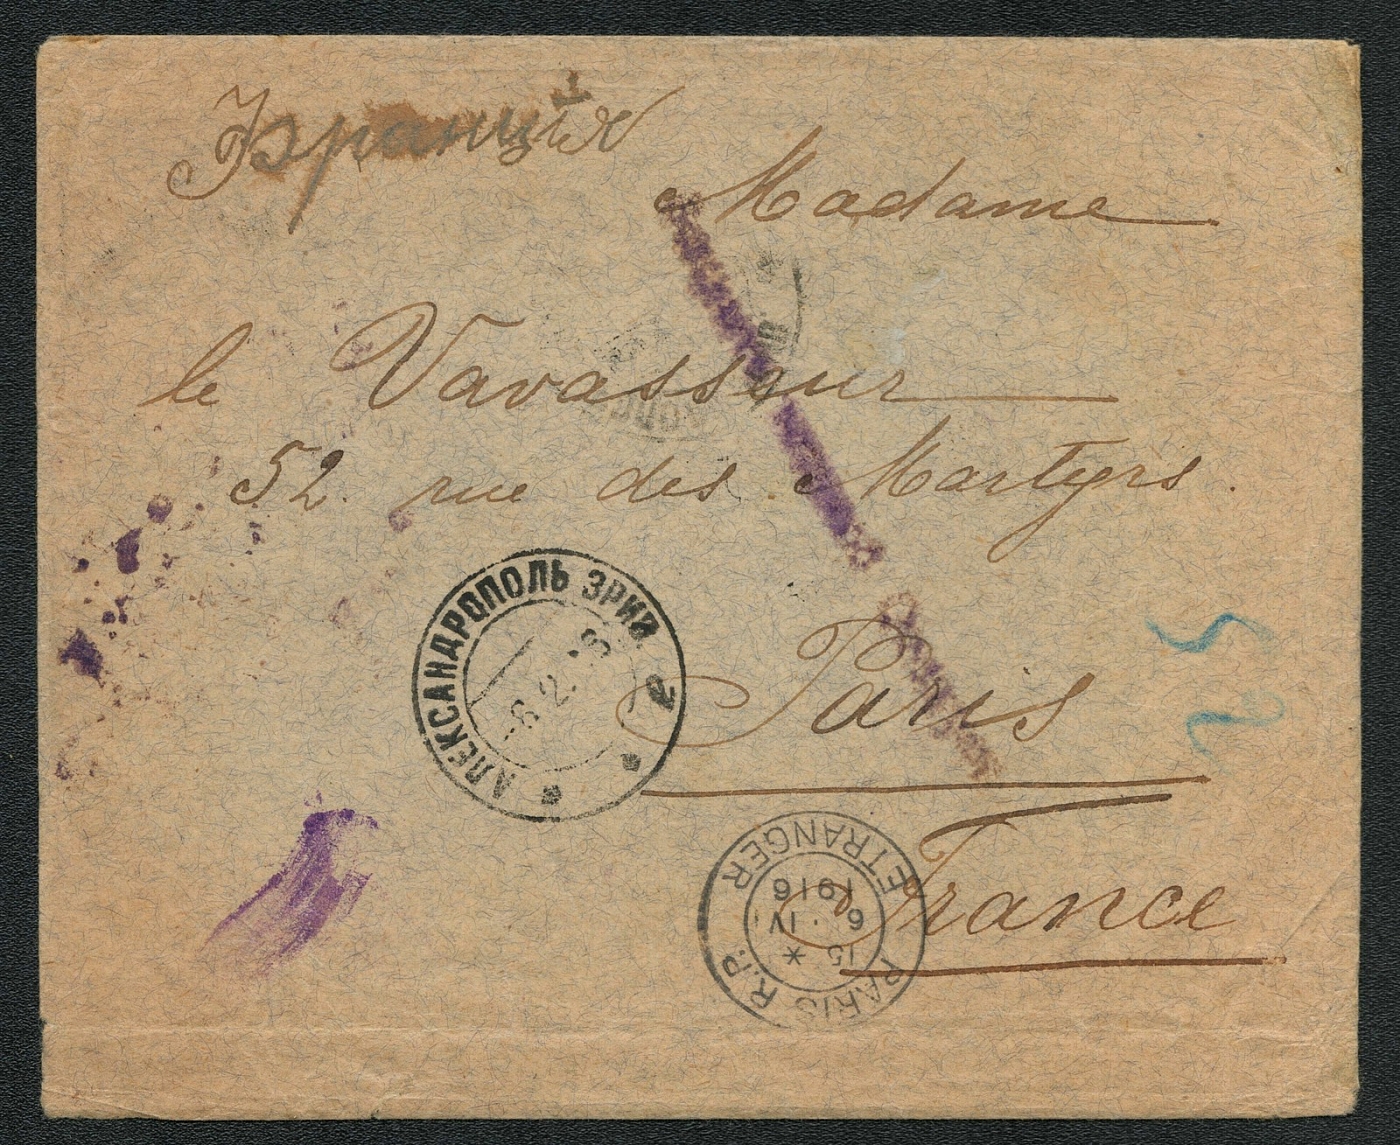 Франція
Madame
le Vavasseur
52. rue des Martyrs.
Paris
France
АЛЕКСАНДРОПОЛЬ ЭРИВ.
-8.2.16
PARIS R.P. ETRANGER
15 * 
6 . IV
1916